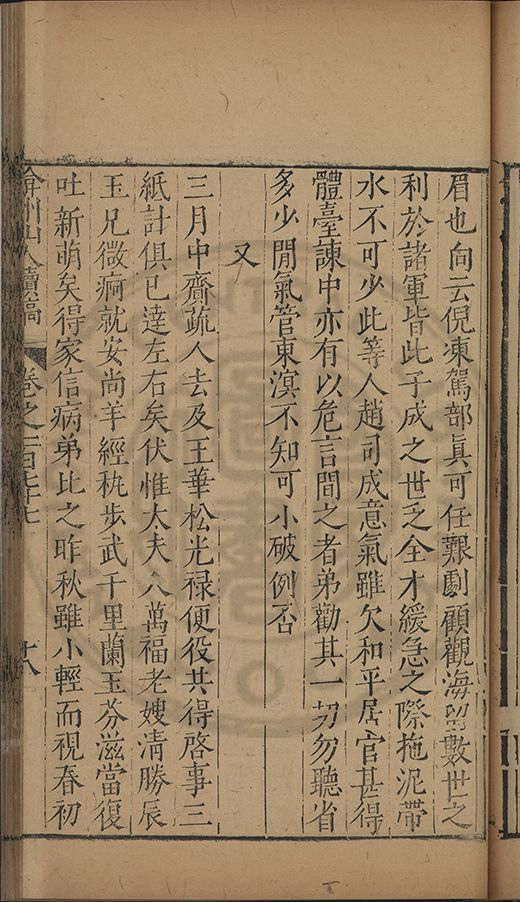 眉也向云倪凍駕部眞可任艱劇顧觀海留數世之
利於諸軍皆此子成之世乏全才緩急之際拖泥帶
水不可少此等人趙司成意氣雖欠和平居官甚得
體臺諫中亦有以危言間之者弟勸其一切勿聽省
多少閒氣管東溟不知可小破例否
又
三月中齎疏人去及王華松光禄便役共得啓事三
紙計俱已達左右矣伏惟太夫人萬福老嫂清勝辰
玉兄微痾就安尚羊經秇步武千里蘭玉芬滋當復
吐新萌矣得家信病弟比之昨秋雖小輕而視春初
弇州山人續稿 卷之一百七十七 十八